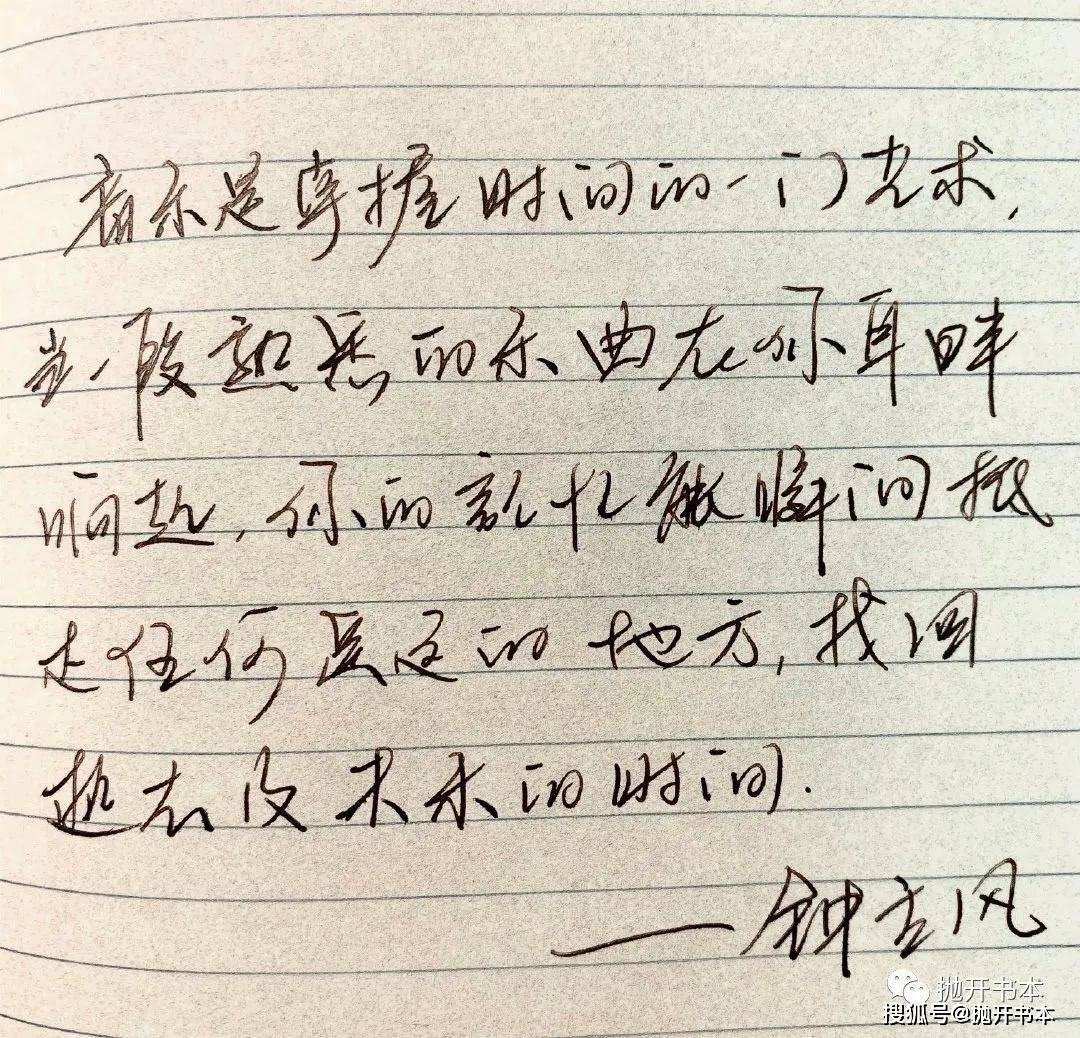 音乐是掌握时间的一门艺术,
当一段熟悉的乐曲在你耳畔
响起,你的记忆能瞬间抵
达任何遥远的地方,找回
逝去及未来的时间.
——钟立风
抛开书本
搜狐号@抛开书本